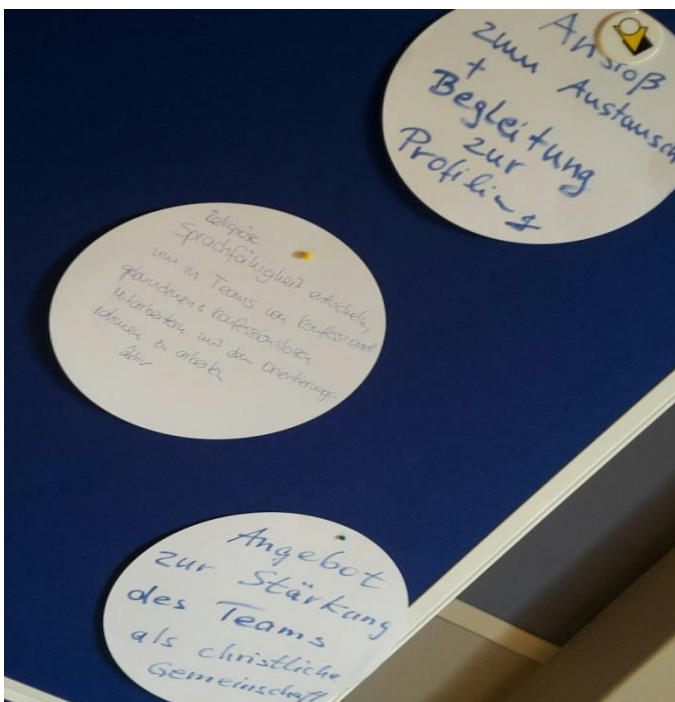 Anstoß
zum Austausch
+
Begleitung
zur
Profiling
Religiöse
Sprachfähigkeit entwickeln,
um in Teams von konfessionell
gebundenen & konfessionslosen
Mitarbeitern mit dem Orientierungs-
rahmen zu arbeiten
aktiv
Angebot
zur Stärkung
des Teams
als christliche
Gemeinschaft